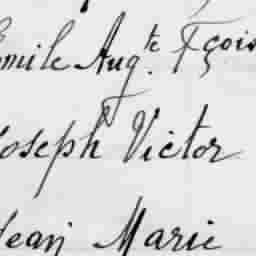 Emile Aug.te Fçois
Joseph Victor
Jean Marie